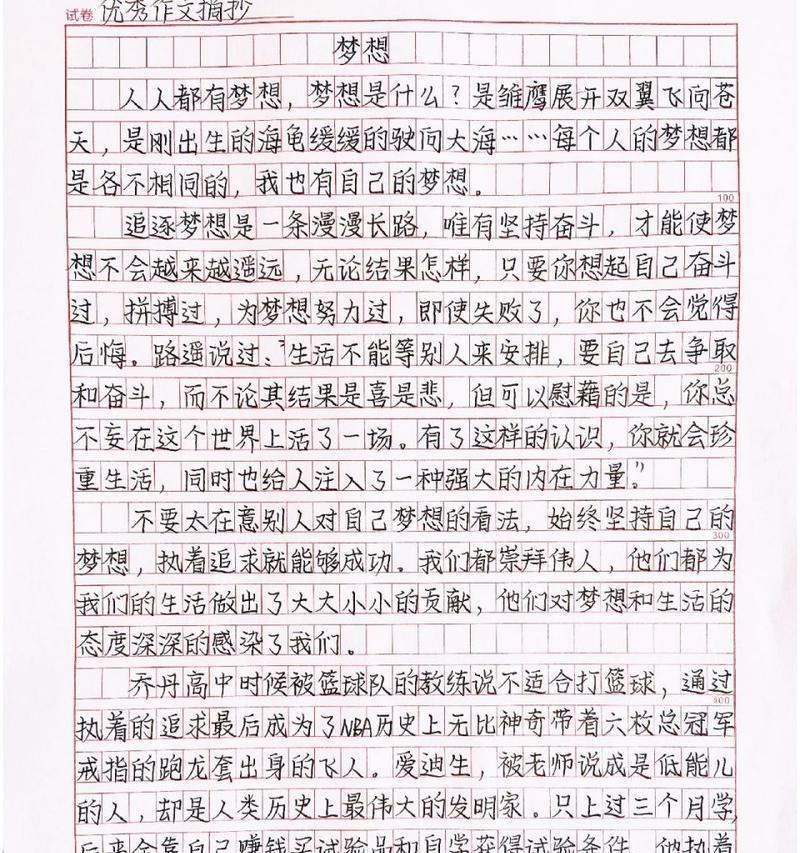 试卷 优秀作文摘抄
梦想
人人都有梦想，梦想是什么？是雏鹰展开双翼飞向苍
天，是刚出生的海龟缓缓的驶向大海……每个人的梦想都
是各不相同的，我也有自己的梦想。
100
追逐梦想是一条漫漫长路，唯有坚持奋斗，才能使梦
想不会越来越遥远，无论结果怎样，只要你想起自己奋斗
过，拼搏过，为梦想努力过，即使失败了，你也不会觉得
后悔。路遥说过：“生活不能等别人来安排，要自己去争取
200
和奋斗，而不论其结果是喜是悲，但可以慰藉的是，你总
不妄在这个世界上活了一场。有了这样的认识，你就会珍
重生活，同时也给人注入了一种强大的内在力量。”
不要太在意别人对自己梦想的看法，始终坚持自己的
300
梦想，执着追求就能够成功。我们都崇拜伟人，他们都为
我们的生活做出了大大小小的贡献，他们对梦想和生活的
态度深深的感染了我们。
乔丹高中时候被篮球队的教练说不适合打篮球，通过
400
执着的追求最后成为了NBA历史上无比神奇带着六枚总冠军
戒指的跑龙套出身的飞人。爱迪生，被老师说成是低能儿
的人，却是人类历史上最伟大的发明家。只上过三个月学，
后来全靠自己赚钱买试验品和自学获得试验条件，他执着